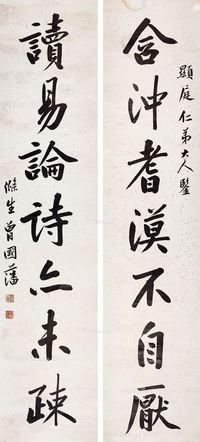 顯庭仁弟大人鑒
含沖耆漠不自厭
讀易論詩亦未疎
滌生曾國藩